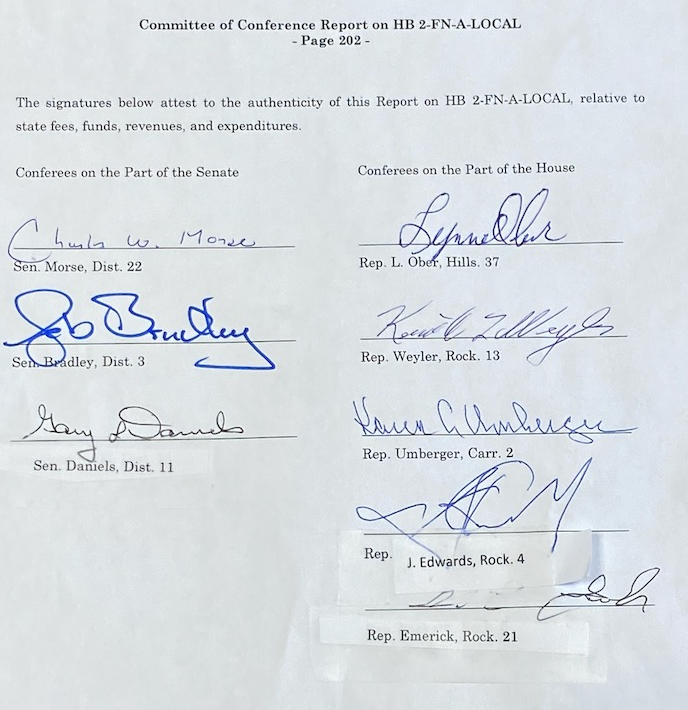 Committee of Conference Report on HB 2-FN-A-LOCAL
- Page 202 -
The signatures below attest to the authenticity of this Report on HB 2-FN-A-LOCAL, relative to
state fees, funds, revenues, and expenditures.
Conferees on the Part of the Senate
Charles W. Morse
Sen. Morse, Dist. 22
Jeb Bradley
Sen. Bradley, Dist. 3
Gary L Daniels
Sen. Daniels, Dist. 11
Conferees on the Part of the House
Lynne Ober
Rep. L. Ober, Hills. 37
Weyler
Rep. Weyler, Rock. 13
Karen C Umberger
Rep. Umberger, Carr. 2
Rep. J. Edwards, Rock. 4
Rep. Emerick, Rock. 21